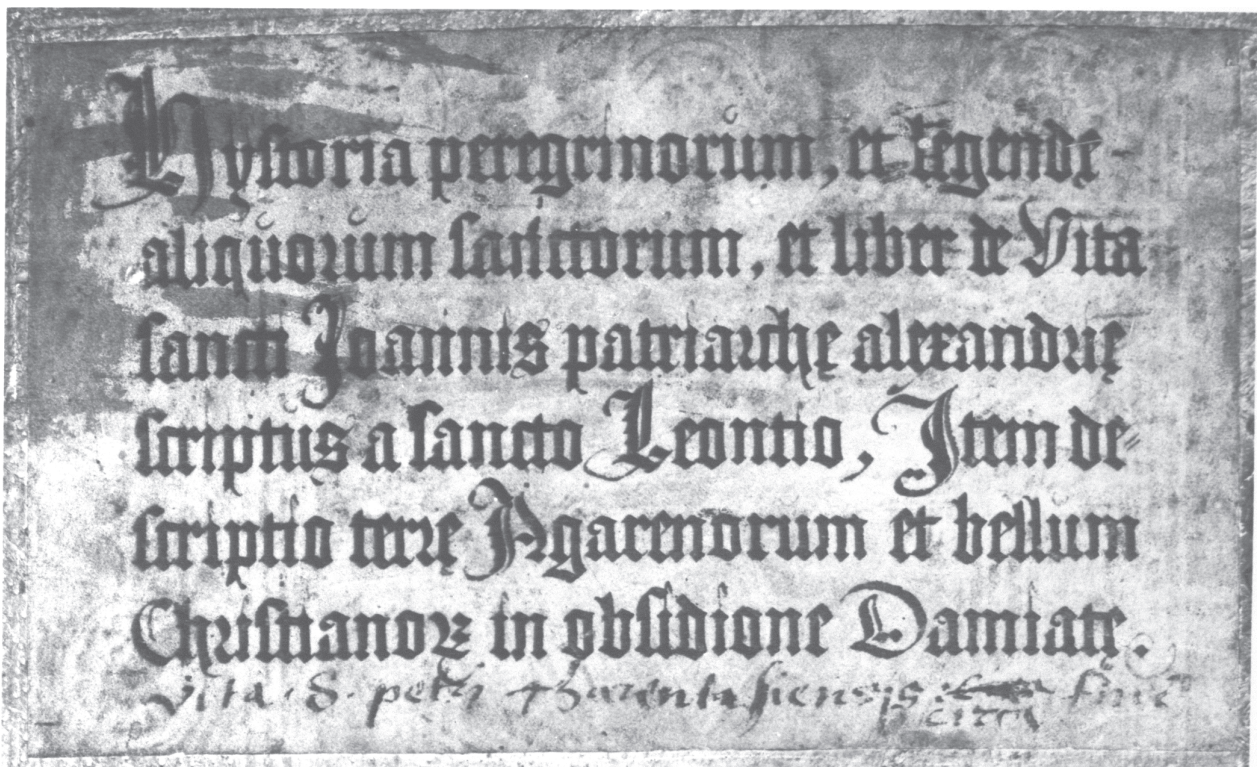 Hystoria peregrinorum, et legendę
aliquorum sanctorum, et liber de Vita
sancti Joannis patriarchę alexandrię
scriptus a sancto Leontio, Item de-
scriptio terrę Agarenorum et bellum
Christianoꝝ in obsidione Damiatę.
Vita S. petri Tharentasiensis circa